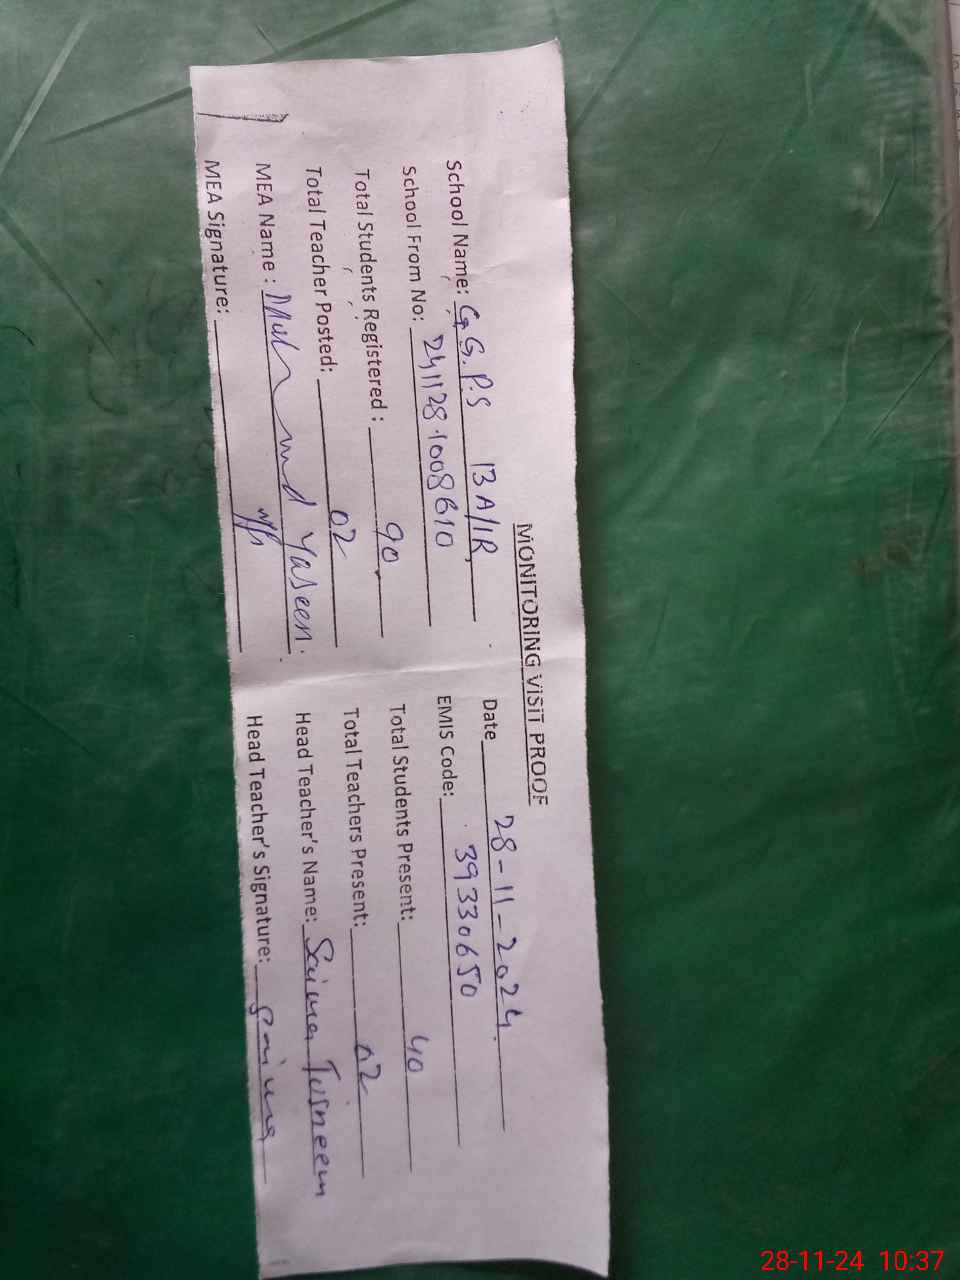 MONITORING VISIT PROOF
School Name: G G.P.S 13 A/1R Date 28-11-2024
School From No: 241128 1008610 EMIS Code: 39330650
Total Students Registered : 90 Total Students Present: 40
Total Teacher Posted: 02 Total Teachers Present: 02
MEA Name : Muhmmd Yaseen. Head Teacher's Name: Saima Tasneem
MEA Signature: Head Teacher's Signature: Saima
28-11-24 10:37